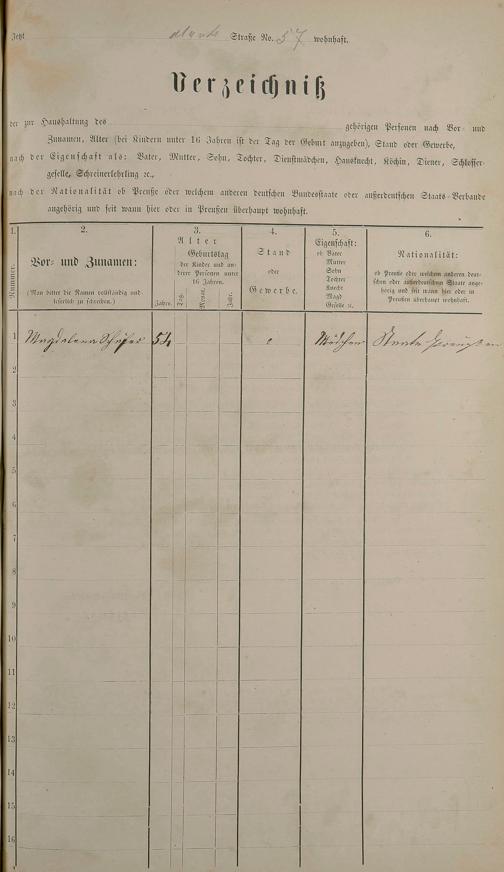 Jetzt Straße No. 57 wohnhaft.
Verzeichniß
der zur Haushaltung des gehörigen Personen nach Vor- und
Zunamen, Alter (bei Kindern unter 16 Jahren ist der Tag der Geburt anzugeben), Stand oder Gewerbe,
nach der Eigenschaft als: Vater, Mutter, Sohn, Tochter, Dienstmädchen, Hausknecht, Köchin, Diener, Schlosser-
geselle, Schreinerlehrling ꝛc.,
nach der Nationalität ob Preuße oder welchem anderen deutschen Bundesstaate oder außerdeutschen Staats-Verbande
angehörig und seit wann hier oder in Preußen überhaupt wohnhaft.
1.
Nummer.
2.
Vor- und Zunamen:
(Man bittet die Namen vollständig und
leserlich zu schreiben.)
3.
Alter
Geburtstag
der Kinder und an-
derer Personen unter
16 Jahren.
Jahre.
Tag.
Monat.
Jahr.
4.
Stand
oder
Gewerbe.
5.
Eigenschaft:
ob Vater
Mutter
Sohn
Tochter
Knecht
Magd
Geselle ꝛc.
6.
Nationalität:
ob Preuße oder welchem anderen deut-
schen oder außerdeutschen Staate ange-
hörig und seit wann hier oder in
Preußen überhaupt wohnhaft.
1 Magdalena Schäfer 54 Mädchen Staate Preußen
2
3
4
5
6
7
8
9
10
11
12
13
14
15
16